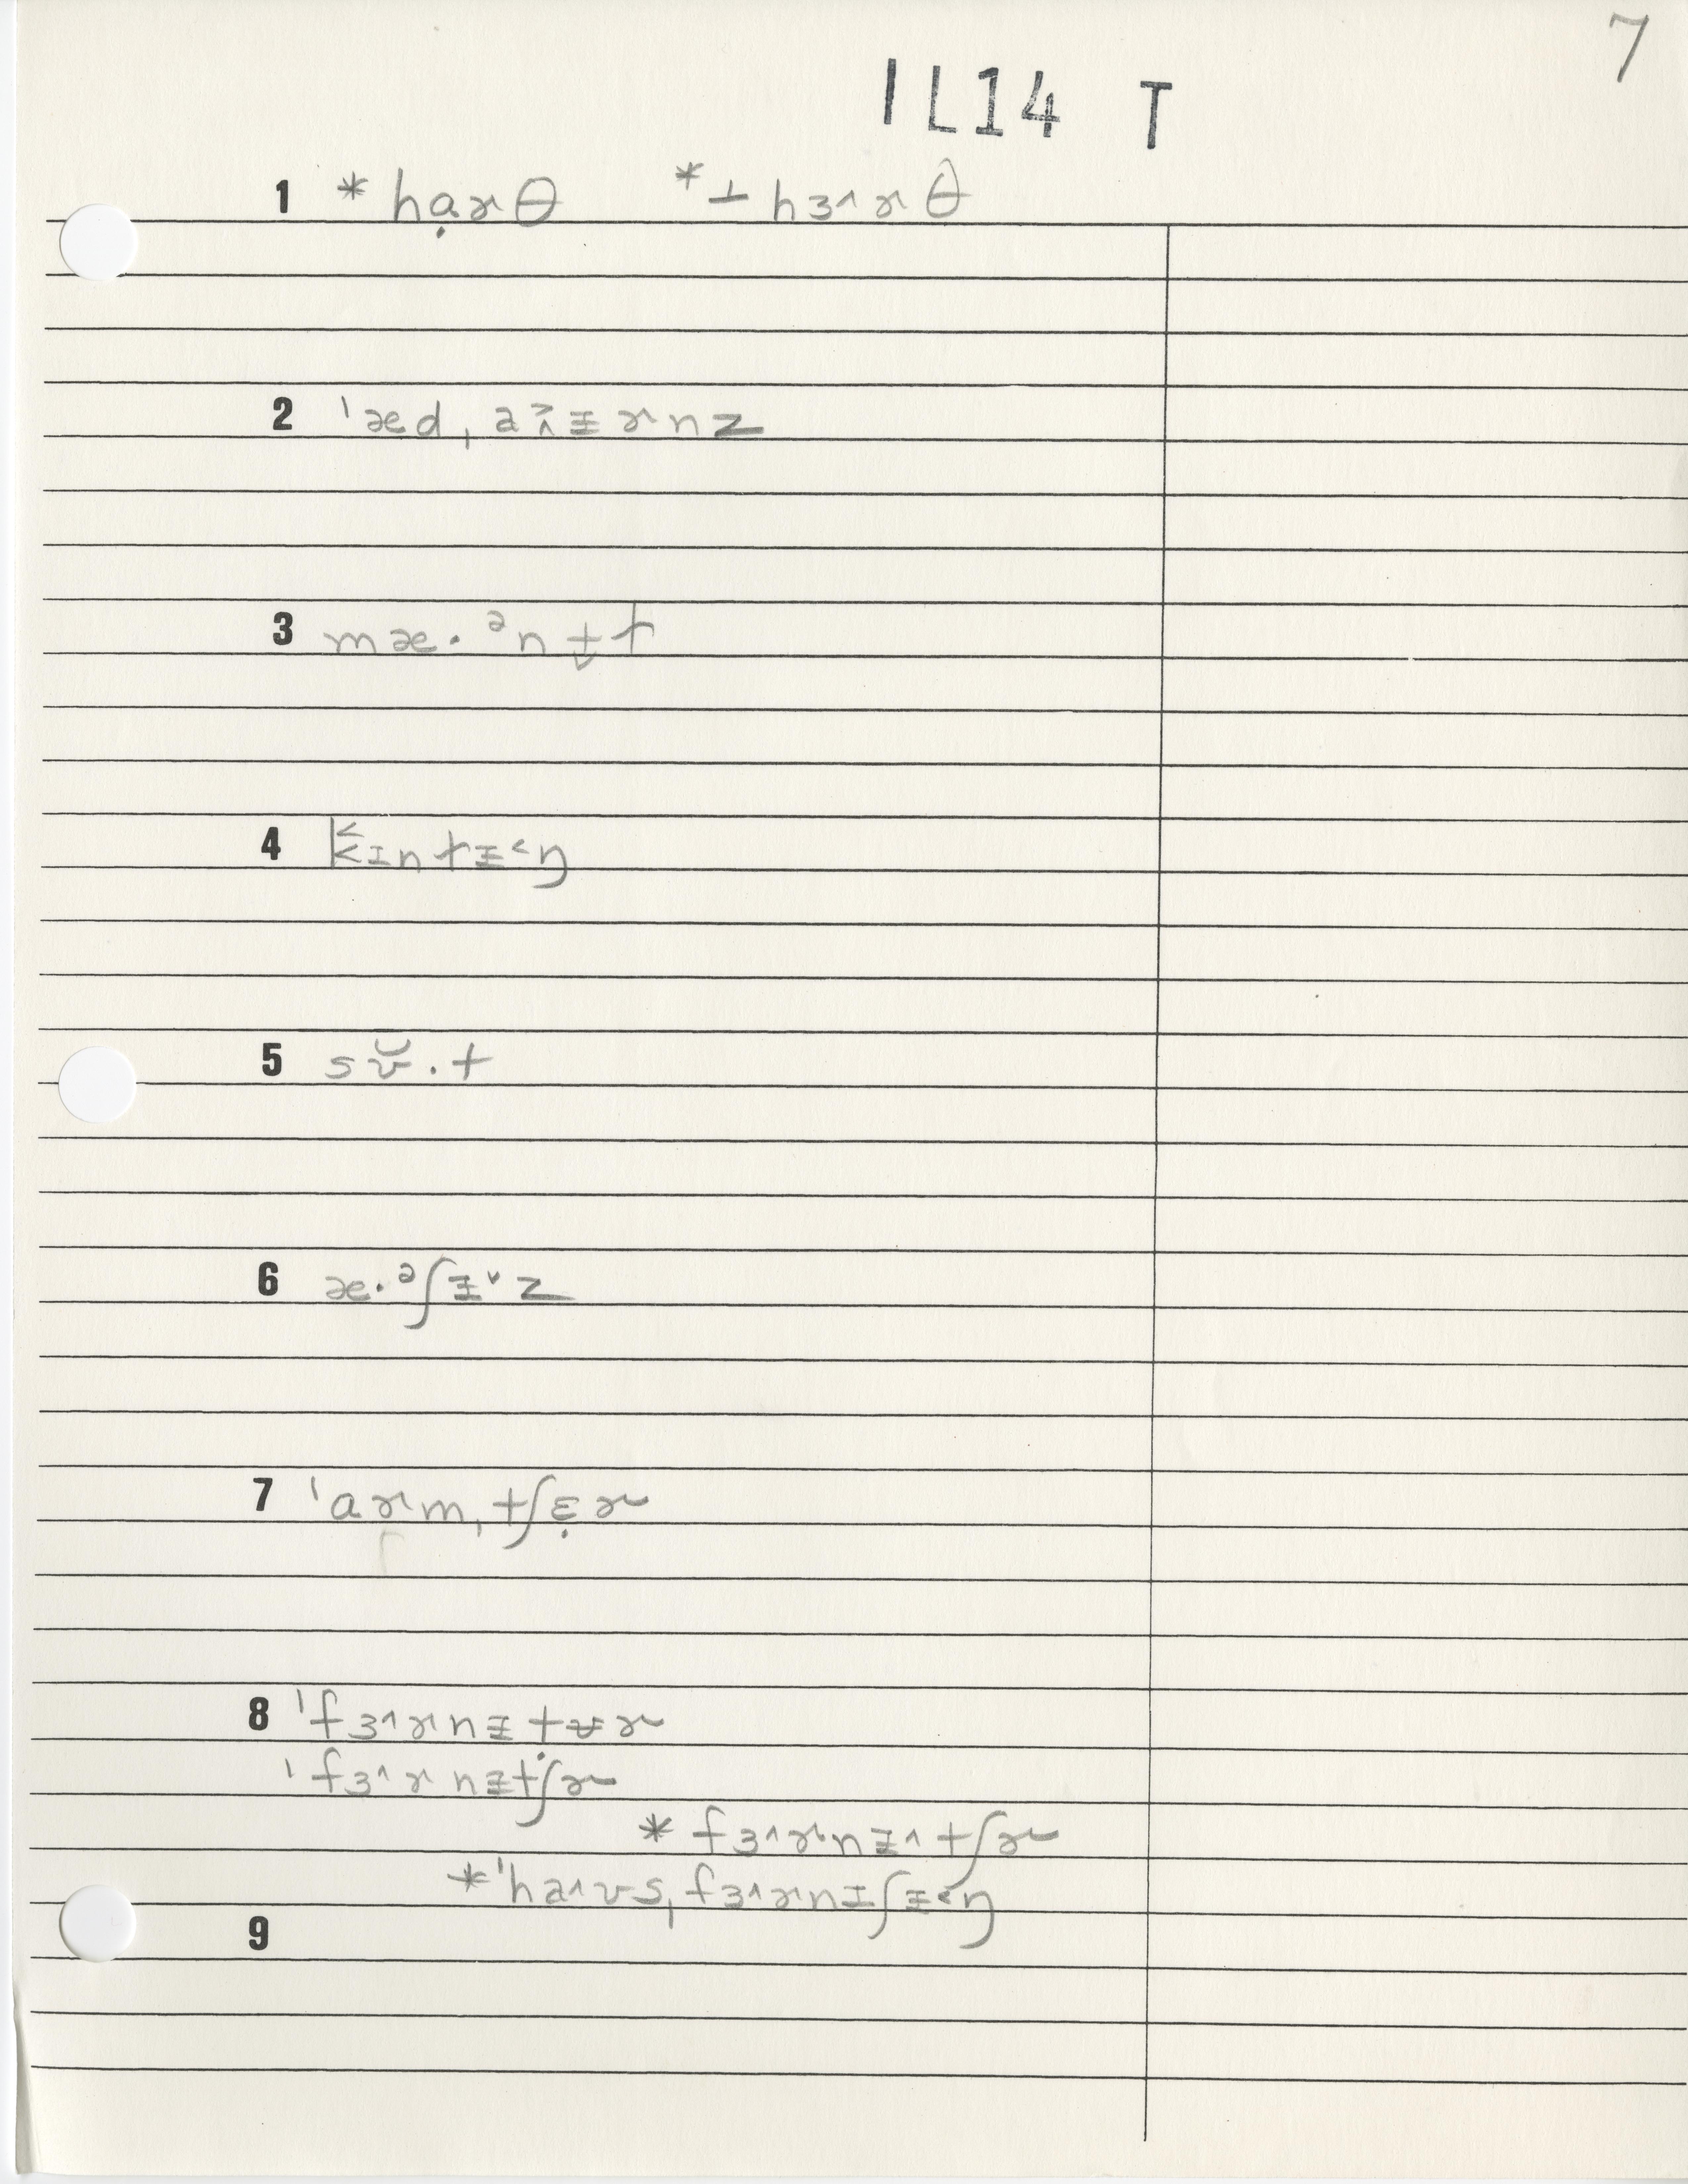 7
IL14 T
1 *hạɚθ *⊥hɜ^ɚθ
2 ˈæd,aɪ̵ɚnz
3 mæ·ᵊnɨ̬t
4 kɪntɪ̵˂ŋ
5 sʊ̵̆·t
6 æ·ᵊʃɪ̵˅z
7 ˈaɚmˌtʃɛ̣ɚ
8 ˈfɜ^ɚnɪ̵ṭʊ̵ɚ
ˈfɜ^ɚnɪ̵tʃɚ
*fɜ^ɚnɪ̵^tʃɚ
*ˈha^ʊsˌfɜ^ɚnɪʃɪ̵˂ŋ
9